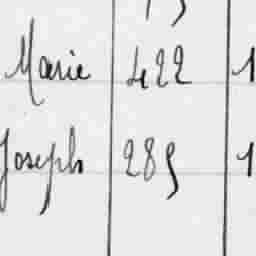 Marie 422 1
Joseph 289 1